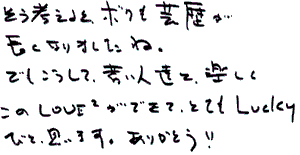 そう考えると、ボクも芸歴が
長くなりましたね。
でもこうして、若い人達と、楽しく
このLOVE²ができて、とてもLucky
だと、思います。ありがとう!!